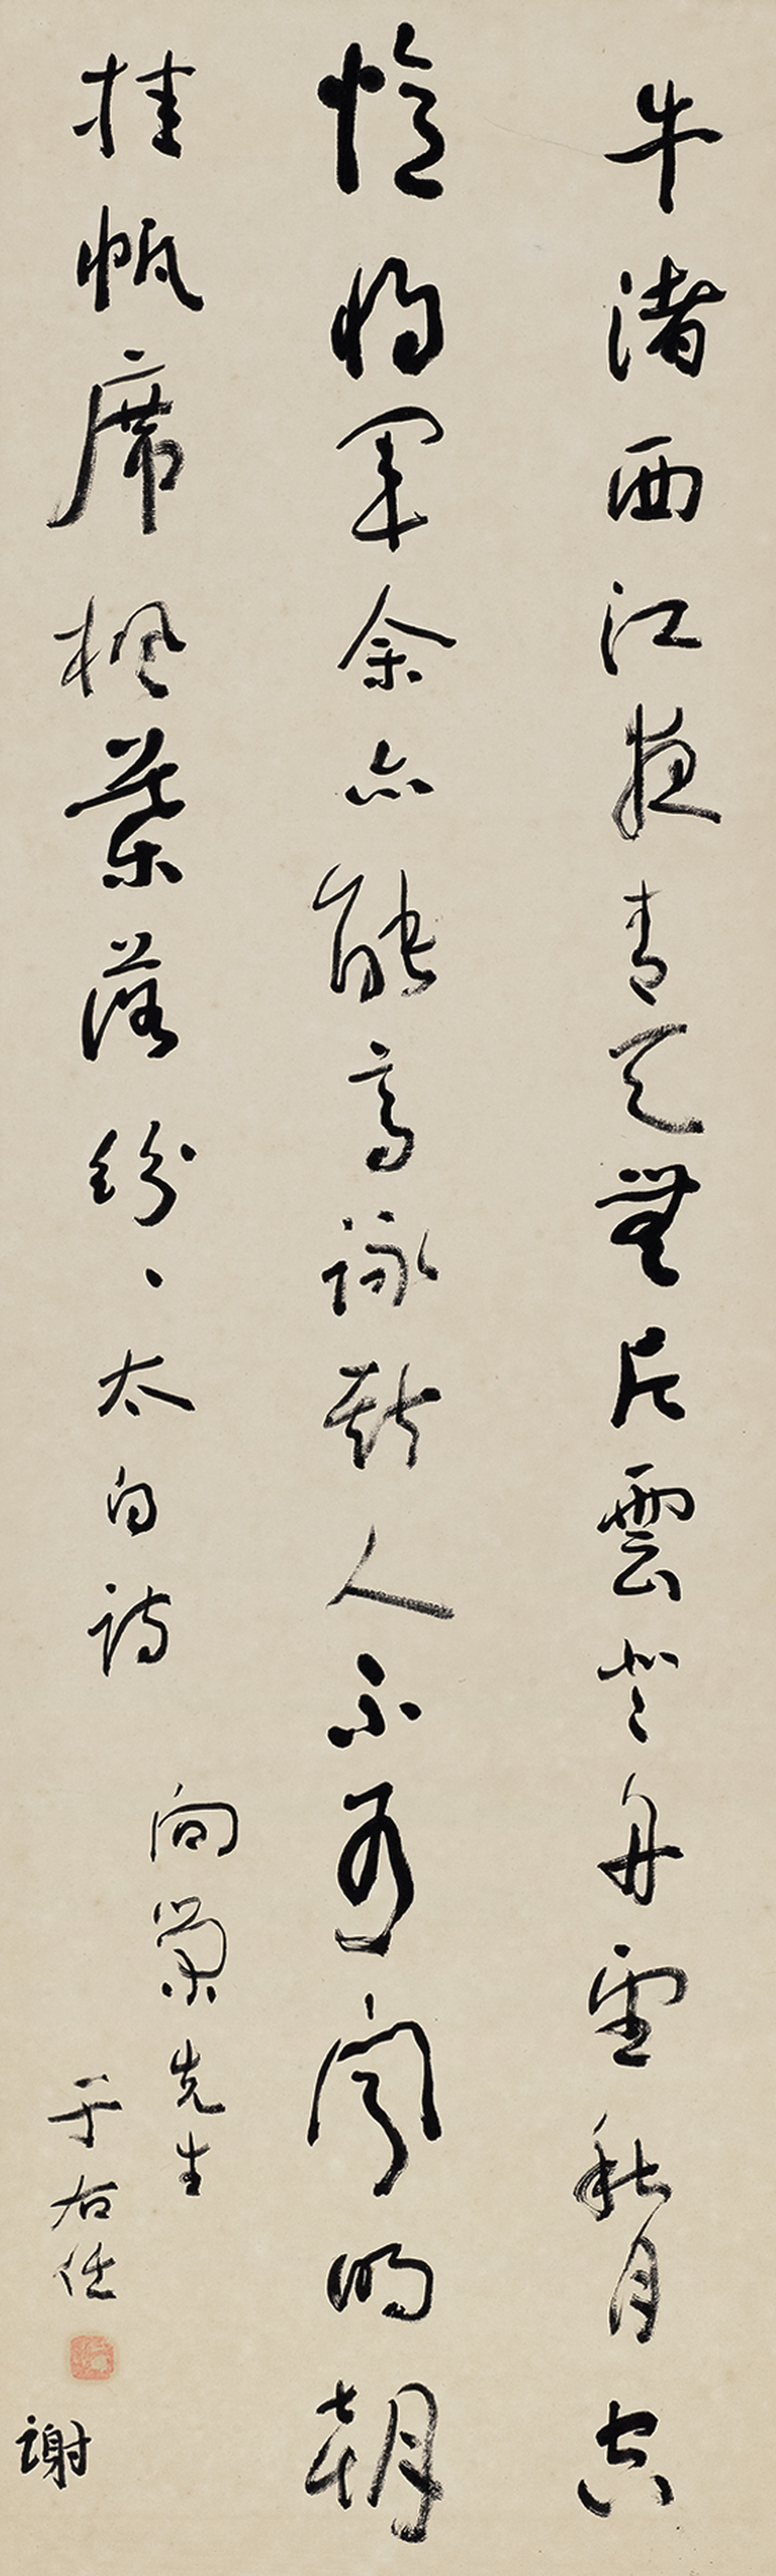 牛渚西江夜青天無片雲登舟望秋月空
憶將軍余亦能高詠斯人不可聞明朝
挂帆席楓葉落紛、太白詩
向榮先生
于右任
謝